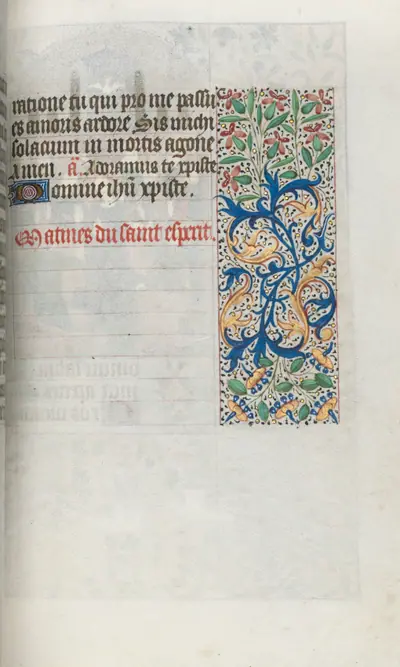 ratione tu qui pro me passu
es amoris ardore Sis michi
solacium in mortis agone
Amen. ã. Adoramus te xpiste
Domine ihū xpiste.
Matines du saint esperit.